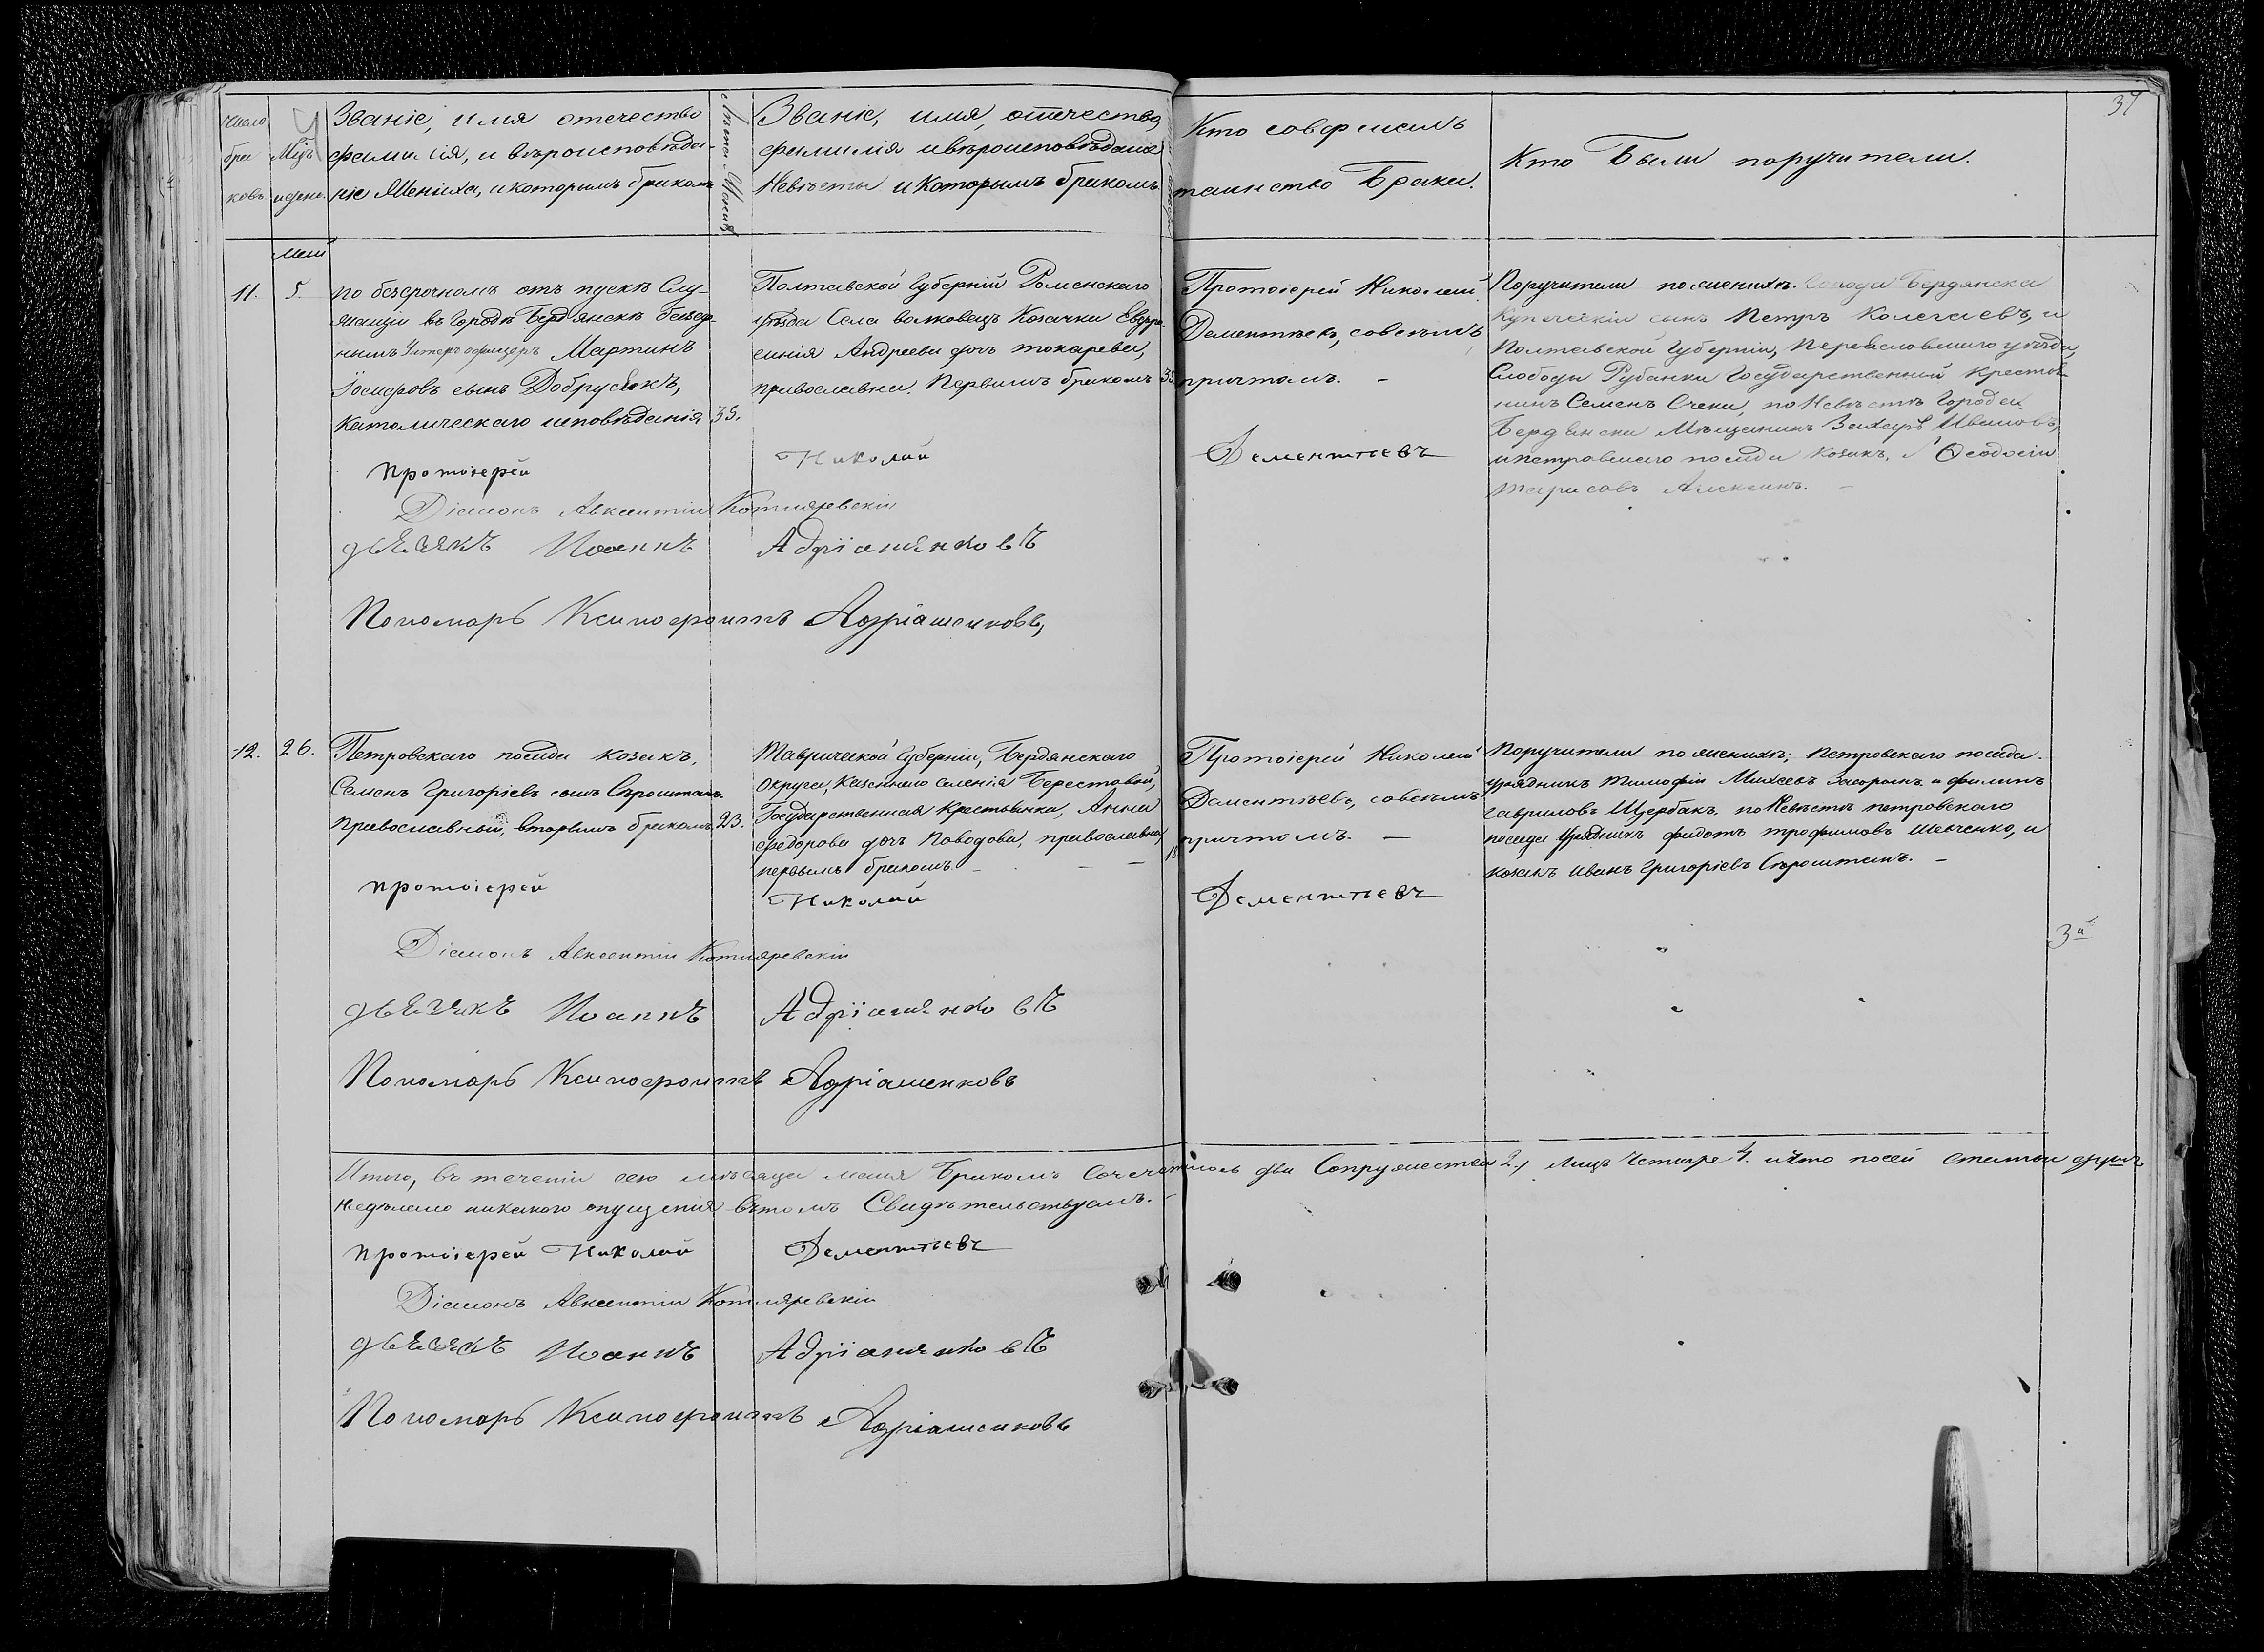 37
число
бра
ковъ
Мцъ
и день.
Званіе, имя отечество
фамилія, и вѣроисповѣда-
ніе Жениха, и которымъ бракомъ
Лѣта Жениха
Званіе, имя, отечество,
фамилія и вѣроисповѣданіе
Невѣсты и Которымъ бракомъ
Кто совершилъ
таинство Брака.
Кто Были поручители.
Маій
11.
5.
по безсрочномъ отъ пускѣ Слу-
жащій въ Городѣ Бердянскѣ
Унтеръ офицеръ Мартинъ
Іосифовъ сынъ
Католическаго исповѣданія
35.
Полтавской Губерній Роменскаго
уѣзда Села волковецъ Козачка Евфро-
синія Андреева дочь токарева,
православна. Первымъ бракомъ
35
Протоіерей Николай
Дементьевъ, совсѣмъ
причтомъ. —
Поручители по женихѣ. Города Бердянска
Купеческій сынъ Петръ и
Полтавской Губерніи, Переясловского уѣзда,
Слободы Рубанки Государственный крестья
нинъ Семенъ по Невѣстѣ Города
Бердянска Мѣщанинъ Захаръ Ивановъ,
и петровского посада козакъ, Ѳеодосій
Тарасовъ
протоіерей Николай Дементьевъ
Діаконъ Авксентій Котляревскій
дьячекъ Иоаннъ Адріаненковъ
Пономарь Ксинофонтъ Адріаненковъ,
12.
26.
Петровскаго посада козакъ,
Семенъ Григоріевъ сынъ Сыроштанъ.
православный, вторымъ бракомъ.
23.
Таврической Губерніи, Бердянскаго
округа, Казеннаго селенія Берестовой,
Государственная Крестьянка, Анна
Федорова дочь Поводова, православна,
первымъ бракомъ. —
18
Протоіерей Николай
Дементьевъ, совсѣмъ
причтомъ. —
Поручители по женихѣ; петровскаго посада.
урядникъ Тимофій Михеевъ и филипъ
Гавриловъ Щербакъ. по Невѣстѣ петровскаго
посада Урядникъ федотъ трофимовъ Шевченко, и
козакъ иванъ Григоріевъ Сыроштанъ. —
протоіерей Николай Дементьевъ
Діаконъ Авксентій Котляревскій
дьячекъ Иоаннъ Адріаненковъ
Пономарь Ксинофонтъ Адріаненковъ
Итого, въ теченіи сего мѣсяца маія Бракомъ Сочеталось два Супружества 2., Лицъ Четыре 4. и что посей статьи
недѣлано никакого опущенія вътомъ Свидѣтельствуемъ. —
протоіерей Николай Дементьевъ
Діаконъ Авксентій Котляревскій
дьячекъ Иоаннъ Адріаненковъ
Пономарь Ксинофонтъ Адріаненковъ